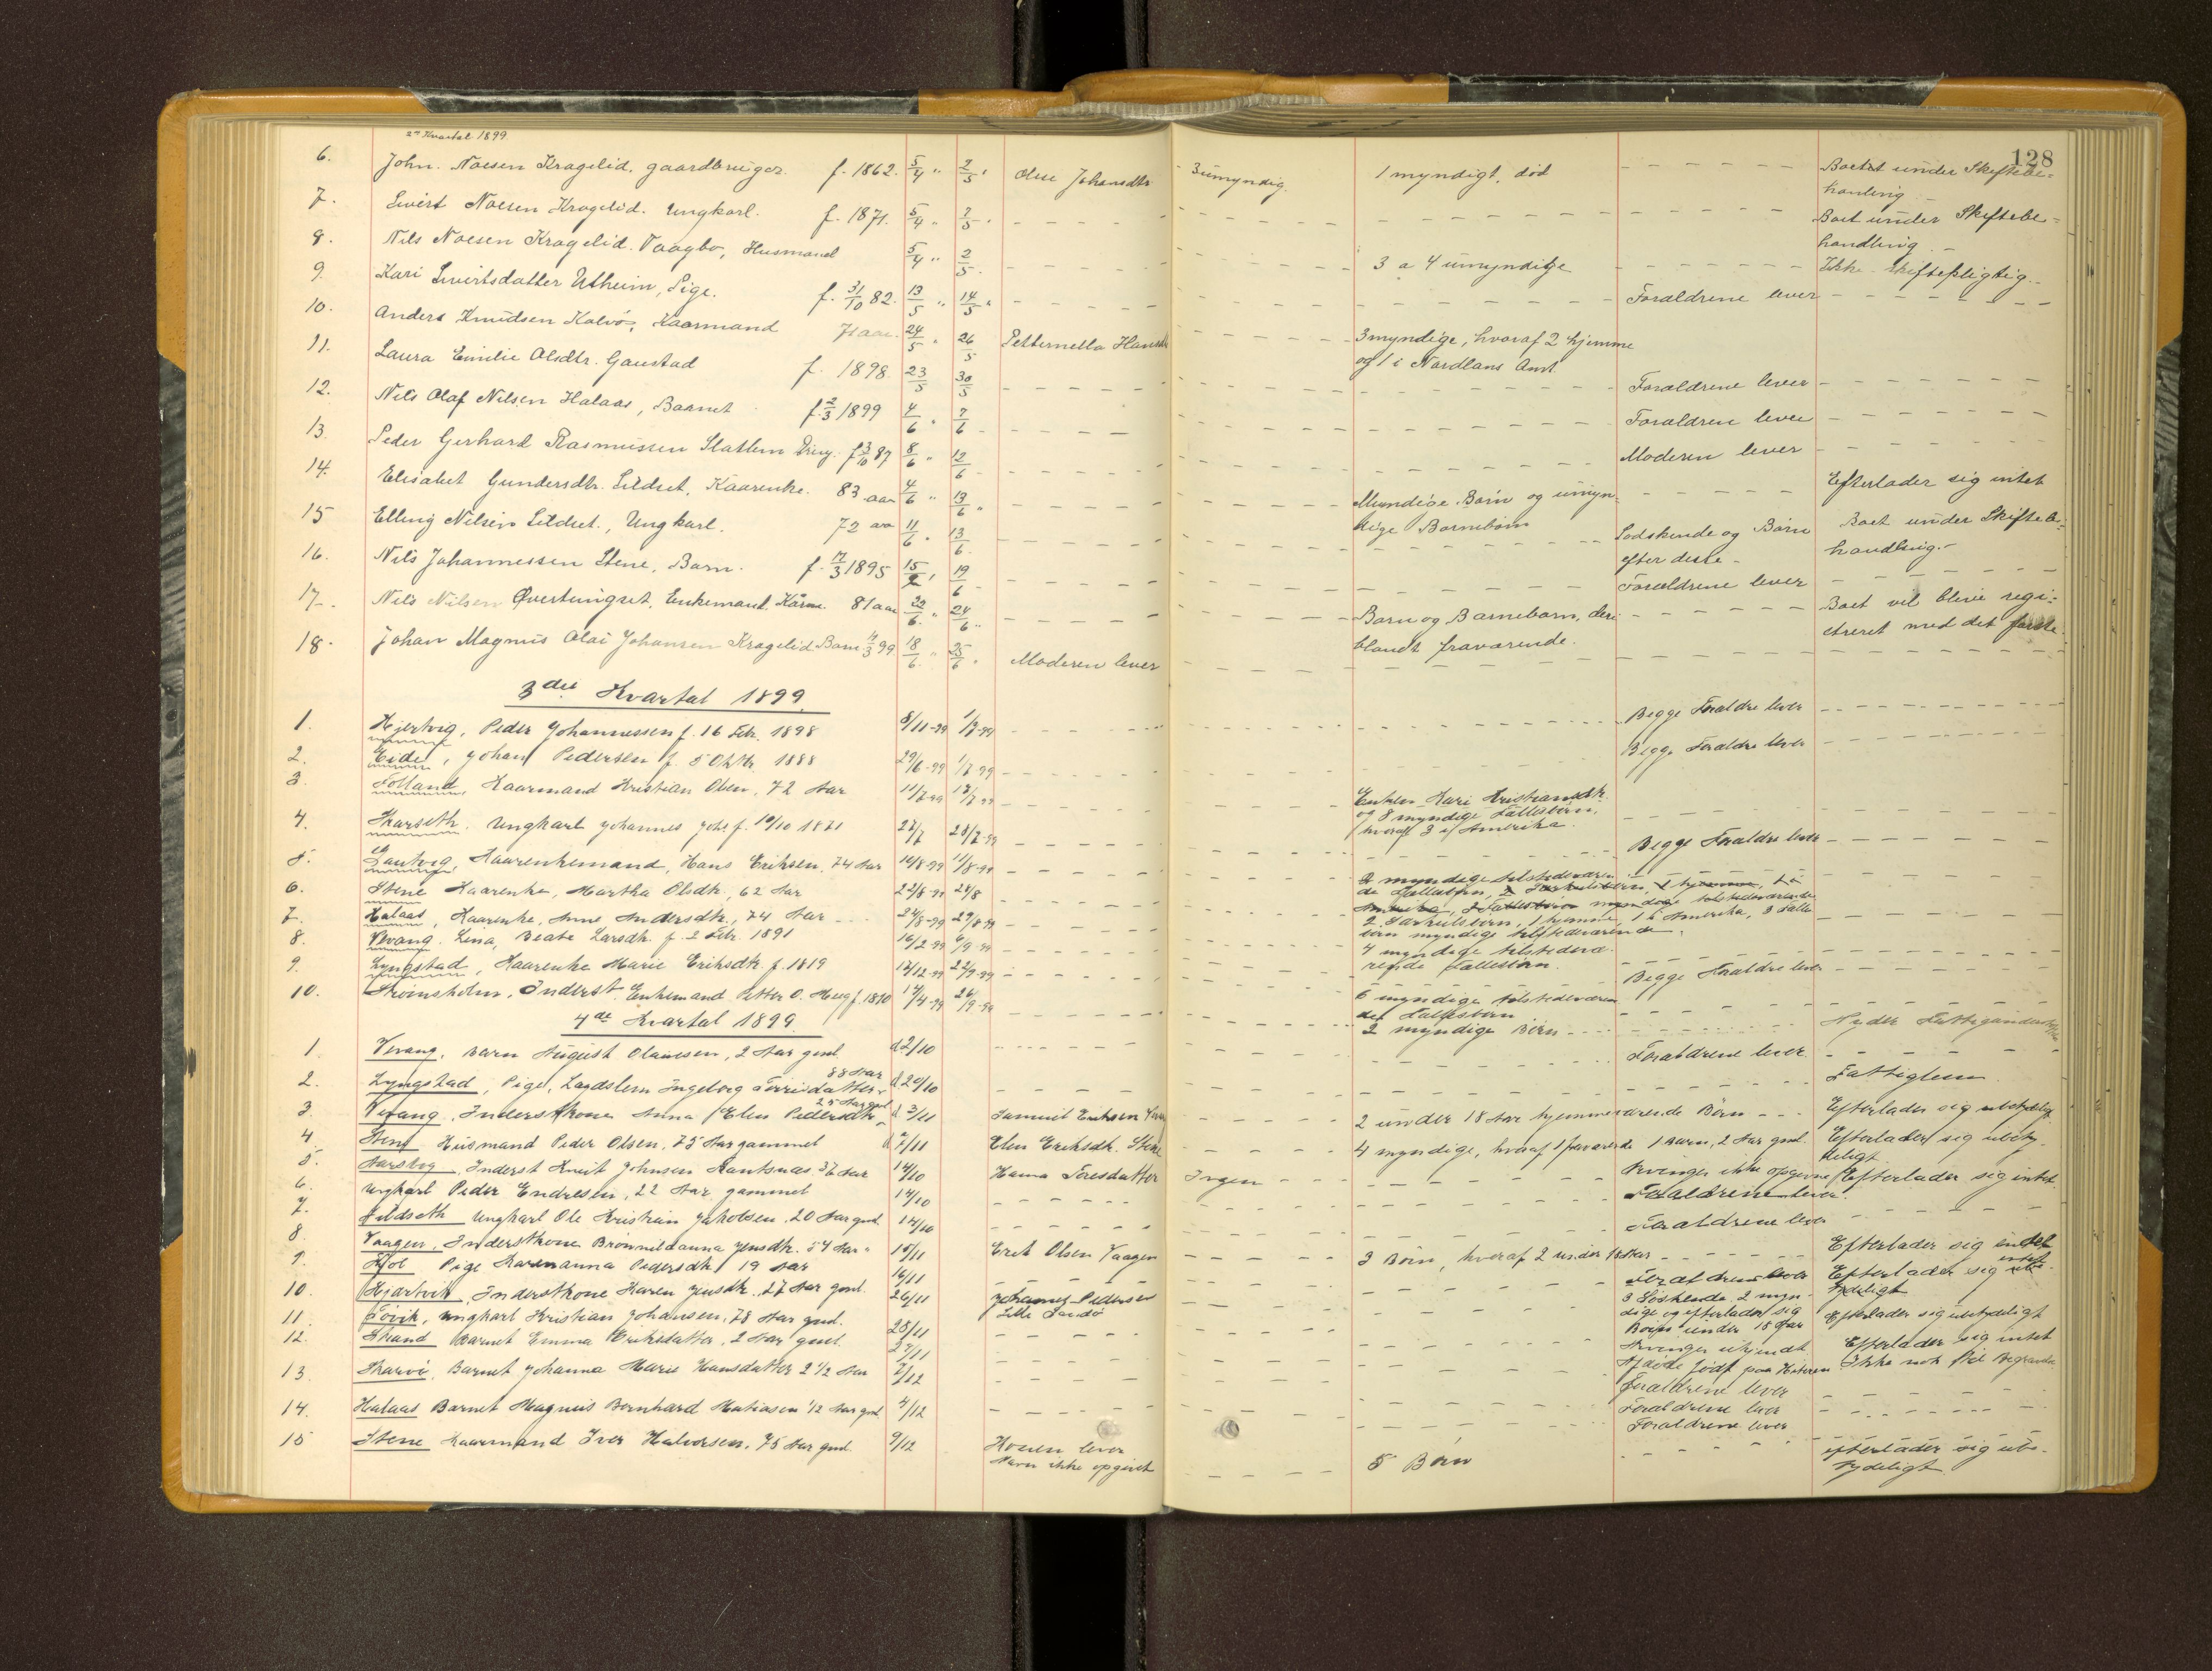 128
2det Kvartal 1899
6. John. Noesen Kragelid, gaardbruger. f. 1862. 5/4 " 2/5 " Oline Johansdtr 3 umyndig. 1 myndigt, død - - - Boet under Skiftebe=
handling
7. Sivert Noesen Kragelid. Ungkarl. f. 1871. 5/4 " 2/5 " - - - Boet under Skiftebe=
handling. -
8. Nils Noesen Kragelid. Vaagbø, Husmand 5/4 " 2/5. - - - 3 a 4 umyndige - - - Ikke skiftepligtig.
9. Kari Sivertsdatter Utheim, Pige. f. 31/10 82. 13/5 " 14/5 " - - - Forældrene lever - - -
10. Anders Knudsen Kalvø, Kaarmand 71 aar. 24/5 " 26/5 Petternella Hansdtr - - - 3 myndige, hvoraf 2 hjemme
og 1 i Nordlans Amt.
11. Laura Emilie Olsdtr. Gaustad f. 1898. 23/5 30/5 - - - Forældrene lever - - -
12. Nils Olaf Nilsen Halaas, Barnet f. 2/3 1899 4/6 " 7/6 - - - Forældren lever - - -
13. Peder Gerhard Rasmussen Statlem Dreng. f 3/10 87 8/6 " 12/6 - - - Moderen lever - - -
14. Elisabet Gundersdtr. Lildset, Kaarenke. 83 aar 4/6 " 13/6 " - - - Myndige Børn og umyn-
dige Barnebørn - - - Efterlader sig intet
15 Elling Nilsen Lildset., Ungkarl. 72 aar 11/6 " 13/6. - - - Sødskende og Børn
efter disse - Boet under Skiftebe=
handling. -
16. Nils Johannessen Stene, Barn. f. 17/3 1895 15/2 " 19/6 - - - Forældrene lever - - -
17. Nils Nilsen Øverbingset, Enkemand. Kårm. 81 aar 22/6. " 24/6 " - - - Børn og Barnebørn, deri
blandt fraværende. - - - Boet vil blive regi=
streret med det første
18. Johan Magnus Olai Johansen Kragelid Barn 11/3 99 18/6. " 25/6 " Moderen lever - - -
3die Kvartal 1899.
1. Hjertvig, Peder Johannessen f. 16 Feb. 1898 8/11-99 1/7-99 - - - Begge Forældre lever - - -
2. Eide, Johan Pedersen f. 5 Oktbr. 1888 29/6-99 1/7-99 - - - Begge Forældre lever - - -
3. Folland, Kaarmand Kristian Olsen, 72 Aar 11/7-99 13/7-99 - - - Enken Kari Kristiansdtr.
og 8 myndige Fællesbørn,
hvoraf 3 i Amerika.
4. Skarseth. Ungkarl Johannes Johs. f. 10/10 1871 22/7 28/7-99 - - - Begge Forældre lever - - -
5. Kaarenkemand, Hans Eriksen, 74 Aar 10/8-99 11/8-99 - - - 2 myndige tilstedeværen
de Fællesbørn,
6. Stene Kaarenke, Martha Olsdtr., 62 Aar 22/8-99 24/8 - - - 2 Særkulsbørn, 1 hjemme, 1 i Amerika, 3 Fælles
børn myndige tilstedeværende.
7. Halaas, Kaarenke, Anne Andersdtr., 74 Aar - - - 24/8-99 29/8-99 - - - 4 myndige tilstedevæ-
rende Fællesbørn.
8. Vevang. Lina, Beate Larsdtr. f. 2 Febr. 1891 16/2-99 6/9-99 - - - Begge Forældre lever - - -
9. Lyngstad, Kaarenke Marie Eriksdtr. f. 1819 12/12-99 22/9-99 - - - 6 myndige tilstedeværen
de Fællesbørn
10. Strømsholm, Inderst Enkemand Petter O. Haug f. 1820 14/4-99 26/9-99 - - - 2 myndige Børn - - - Nyder Fattigunderst
4de Kvartal 1899.
1. Vevang, Barn August Olaussen, 2 Aar gml. d 2/10 - - - Forældrene lever - - -
2. Lyngstad, Pige, Lægdslem Ingeborg Torrisdatter 88 Aar d 20/10 - - - Fattiglem
3. Vevang, Inderstkone Anna Elen Pedersdtr. 25 Aar gml. d 3/11 Samuel Eriksen - - - 2 under 18 Aar hjemmeværende Børn - - - Efterlader sig ubetydelig
4 Stene Husmand Peder Olsen, 75 Aar gammel 7/11 Elen Eriksdtr. Stene - - - 4 myndige, hvoraf 1 fraværende 1 Barn, 2 Aar gml. Efterlader sig ubety-
deligt
5. Aarsbog, Inderst Knut Johnsen Rantsnæs. 36 Aar 14/10 Hanna Toresdatter Ingen - - - Arvinger ikke opgivne Efterlader sig intet.
6. Ungkarl Peder Endresen, 22 Aar gammel 14/10 - - - Forældrene lever.
7. Lildseth Ungkarl Ole Kristian Jakobsen. 20 Aar gml. 14/10 - - - Forældrene lever - - -
8. Vaagen, Inderstkone Brønnildanna Jensdtr. 54 Aar " 10/11 Erik Olsen Vaagen - - - 3 Børn, hvoraf 2 under 18 Aar - - - Efterlader sig intet
9. Hol Pige Karenanna Pedersdtr 19 Aar 16/11 - - - Forældrene lever Efterlader sig intet
10. Hjartvik, Inderstkone Karen Jensdtr., 27 Aar gml. 26/11 Johannes Pedersen
Lille Sandø - - - Efterlader sig ube-
tydeligt
11. Tøvik, Ungkarl Kristian Johansen, 78 Aar gml. 28/11 - - - 3 Søskende, 2 myn-
dige og efterlader sig
Børn under 18 Aar Efterlader sig ubetydeligt
12. Strand Barnet Emma Eriksdatter, 2 Aar gml. 27/11 - - - Arvinger ukjendt. Efterlader sig intet
Afdøde født paa Hiteren Ikke nok til Begravelse
13. Skarvø. Barnet Johanna Marie Hansdatter 2 1/2 Aar 2/12 - - - Forældrene lever - - -
14. Halaas Barnet Magnus Bernhard Matiasen 1/2 Aar gml 4/12 - - - Forældrene lever - - -
Forældrene lever
15 Stene Kaarmand Iver Halvorsen, 75 Aar gml. 9/12 Konen lever
Navn ikke opgivet - - - 5 Børn - - - Efterlader sig ube-
tydeligt